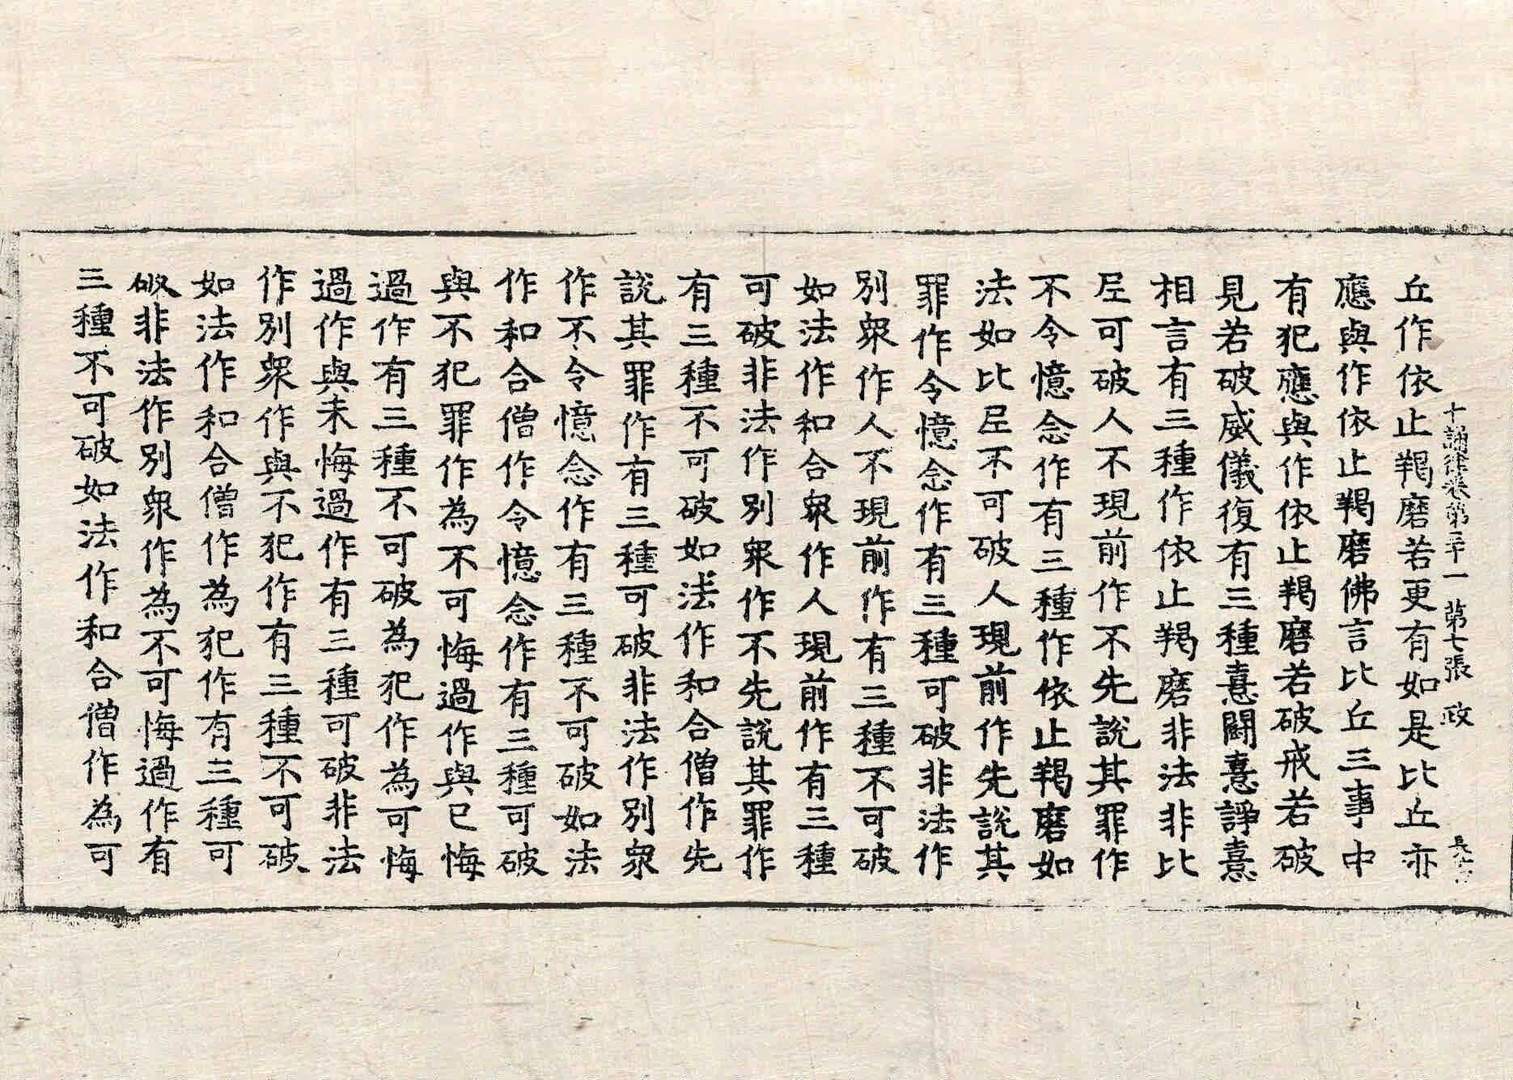 十誦律卷第三十一 第七張 政
丘作依止羯磨若更有如是比丘亦
應與作依止羯磨佛言比丘三事中
有犯應與作依止羯磨若破戒若破
見若破威儀復有三種憙鬪憙諍憙
相言有三種作依止羯磨非法非比
尼可破人不現前作不先說其罪作
不令憶念作有三種作依止羯磨如
法如比尼不可破人現前作先說其
罪作令憶念作有三種可破非法作
別衆作人不現前作有三種不可破
如法作和合衆作人現前作有三種
可破非法作別衆作不先說其罪作
有三種不可破如法作和合僧作先
說其罪作有三種可破非法作別衆
作不令憶念作有三種不可破如法
作和合僧作令憶念作有三種可破
與不犯罪作為不可悔過作與已悔
過作有三種不可破為犯作為可悔
過作與未悔過作有三種可破非法
作別衆作與不犯作有三種不可破
如法作和合僧作為犯作有三種可
破非法作別衆作為不可悔過作有
三種不可破如法作和合僧作為可